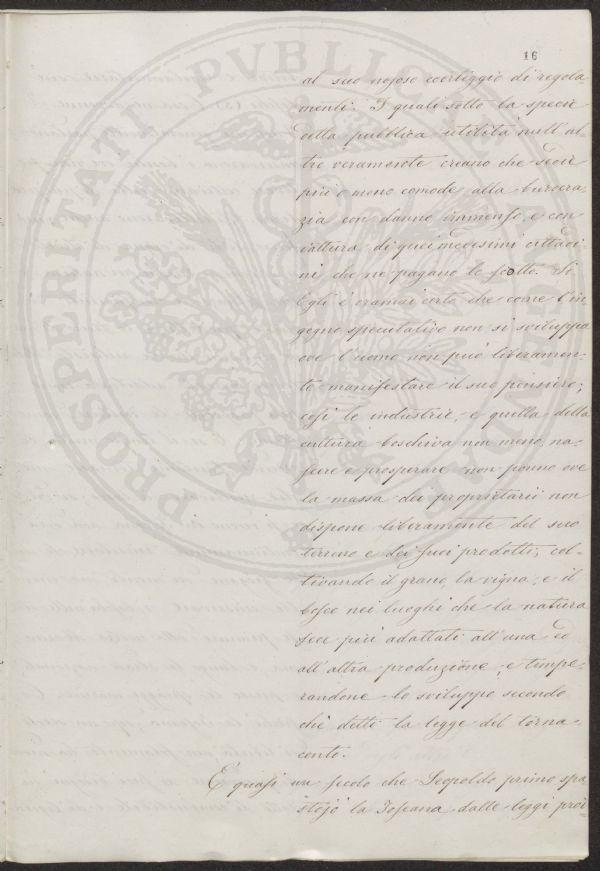 16
al suo nojoso corteggio di regola-
menti. I quali sotto la specie
della pubblica utilità null'al
tro veramente creano che sedie
più o meno comode alla burocra-
zia con danno immenso, e con
iattura di quei medesimi cittadi-
ni che ne pagano lo scotto. Sì
Egli è oramai certo che come l'in
gegno speculativo non si sviluppa
ove l'uomo non può liveramen-
te manifestare il suo pensiero;
così le industrie, e quella della
cultura boschiva non meno, na-
scere e prosperare non ponno ove
la massa dei proprietarii non
dispone liberamente del suo
terreno e dei suoi prodotti; col-
tivando il grano, la vigna, e il
bosco nei luoghi che la natura
fece più adattati all'una ed
all'altra produzione, e tempe-
randone lo sviluppo secondo
che detti la legge del torna-
conto.
È quasi un secolo che Leopoldo primo spa
stojò la Toscana dalle leggi proi
PROSPERITATI PVBLICAE AVGENDAE